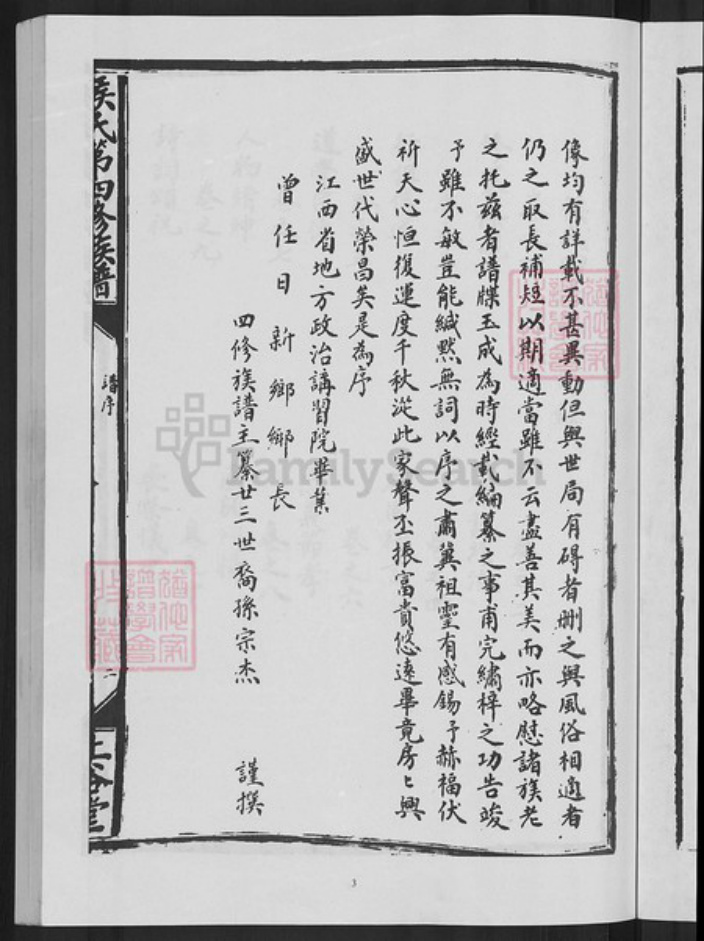 像均有詳載不甚異動但與世局有碍者刪之與風俗相適者
仍之取長補短以期適當雖不云盡善其美而亦略慰諸族老
之托茲者譜牒玉成為時經載編纂之事甫完繡梓之功告竣
予雖不敏豈能緘默無詞以序之肅冀祖靈有感錫予赫福伏
祈天心恒復運度千秋從此家聲丕振富貴悠遠畢竟房々興
盛世代榮昌矣是為序
江西省地方政治講習院畢業
曾任日新鄉鄉長
四修族譜主纂廿三世裔孫宗杰 謹撰
侯氏第四修族譜
譜序
二
上谷堂
3
FamilySearch